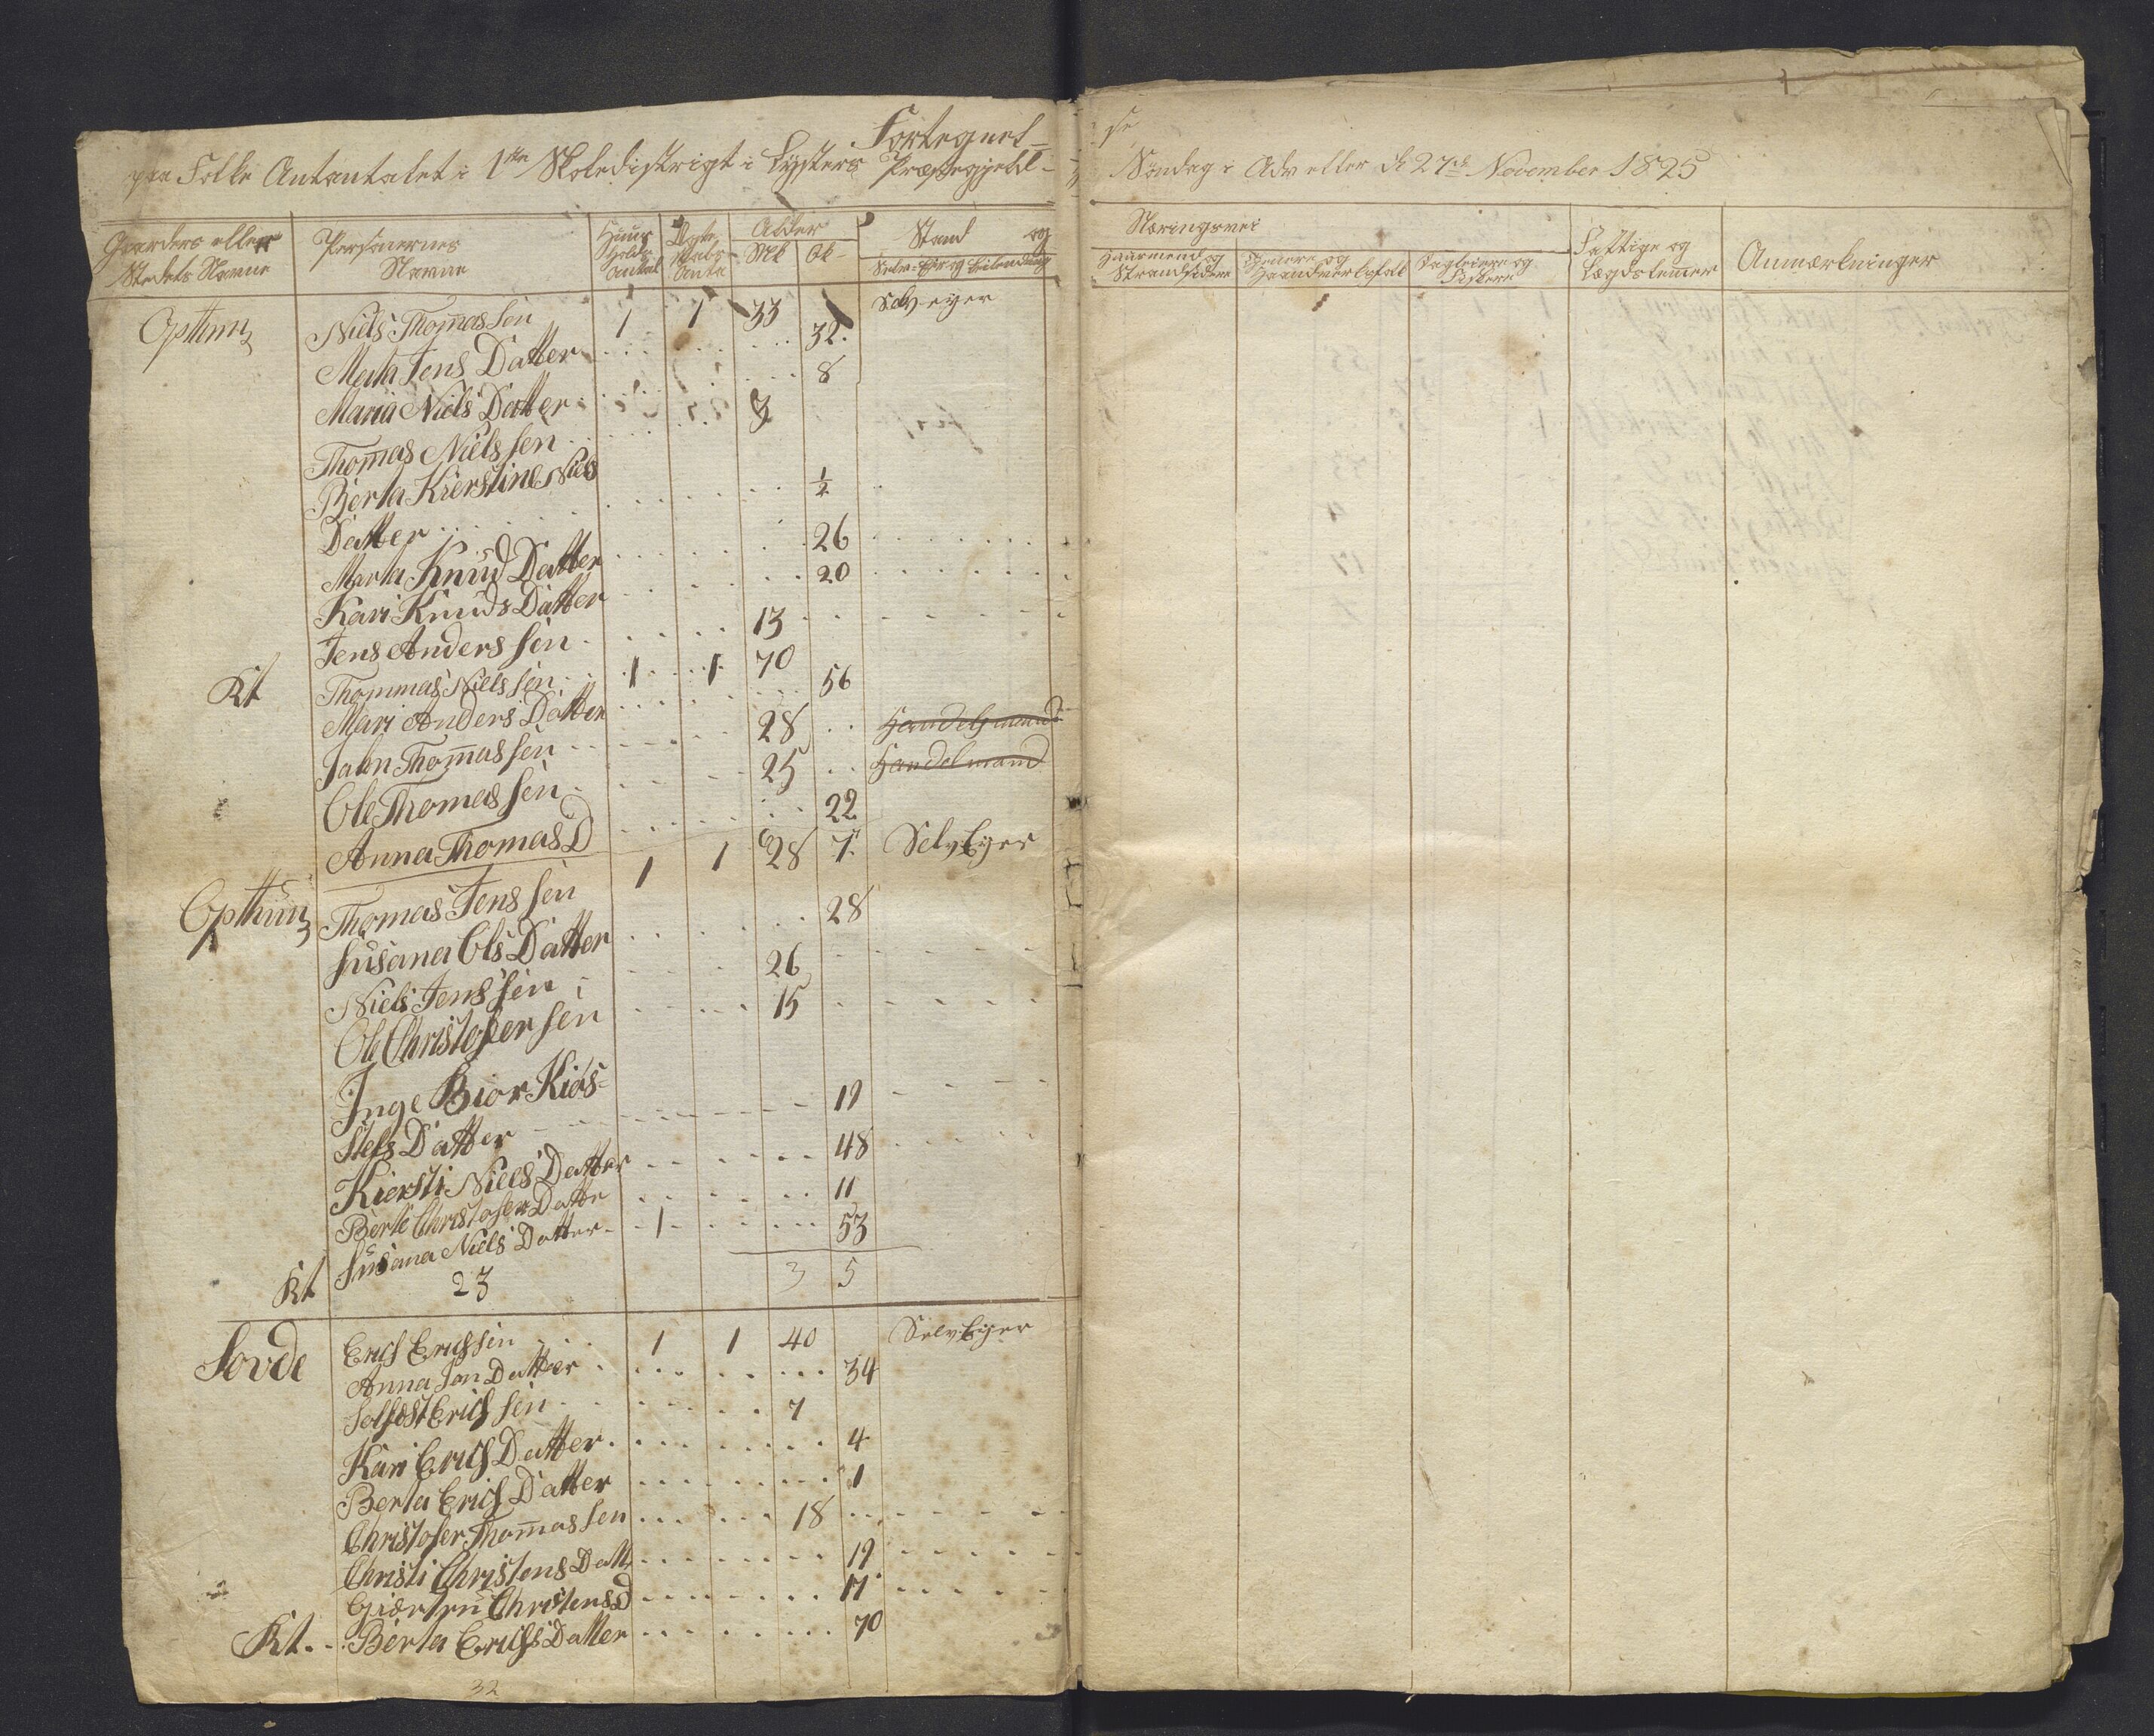 Fortegnel=
se
paa Folke Antantalet i 1ste Skoledistrigt i Lysters Præstegjeld
Søndag i Adv eller d 27de November 1825
Gaardens eller Stedets Navne
Personernes Navne
Huus Holds Antal
Ægte skabs Anta
Alder
Mk
Qk
Stand og
Næringsvei
Fattige og Lægdslemer
Anmærkninger
Opthun Niels Thomassen 1 1 33 Selv eyer
Marta Jens Datter 32
Maria Niels Datter 8
Thomas Nielssen 3
Berta Kierstine Niels
Datter ½
Marta Knud Datter 26
Kari Knuds Datter 20
Jens Anderssen 13
Kt Thommas Nielssen 1 1 70
Mari Anders Datter 56
Jahn Thomassen 28 Handelsmand
Ole Thomassen 25 Handelmand
Anna Thomas D 22
Opthun Thomas Jenssen 1 1 28 7 SelvEyer
Susana Ols Datter 28
Niels Jenssen 26
Ole Christofersen 15
Inge Bior Kiøs=
tels Datter 19
Kiersti Niels Datter 48
Berte Christofer Datte 11
Kt Susana Niels Datter 1 53
23 3 5
Sovde Erich Erichsen 1 1 40 SelvEyer
Anna Jon Datter 34
Solfest Erichsen 7
Kari Erich Datter 4
Berta Erich Datter 1
Christofer Thomassen 18
Christi Christens Datt 19
Giørtru Christens D 17
Kt. Berta Erichs Datter 70
32